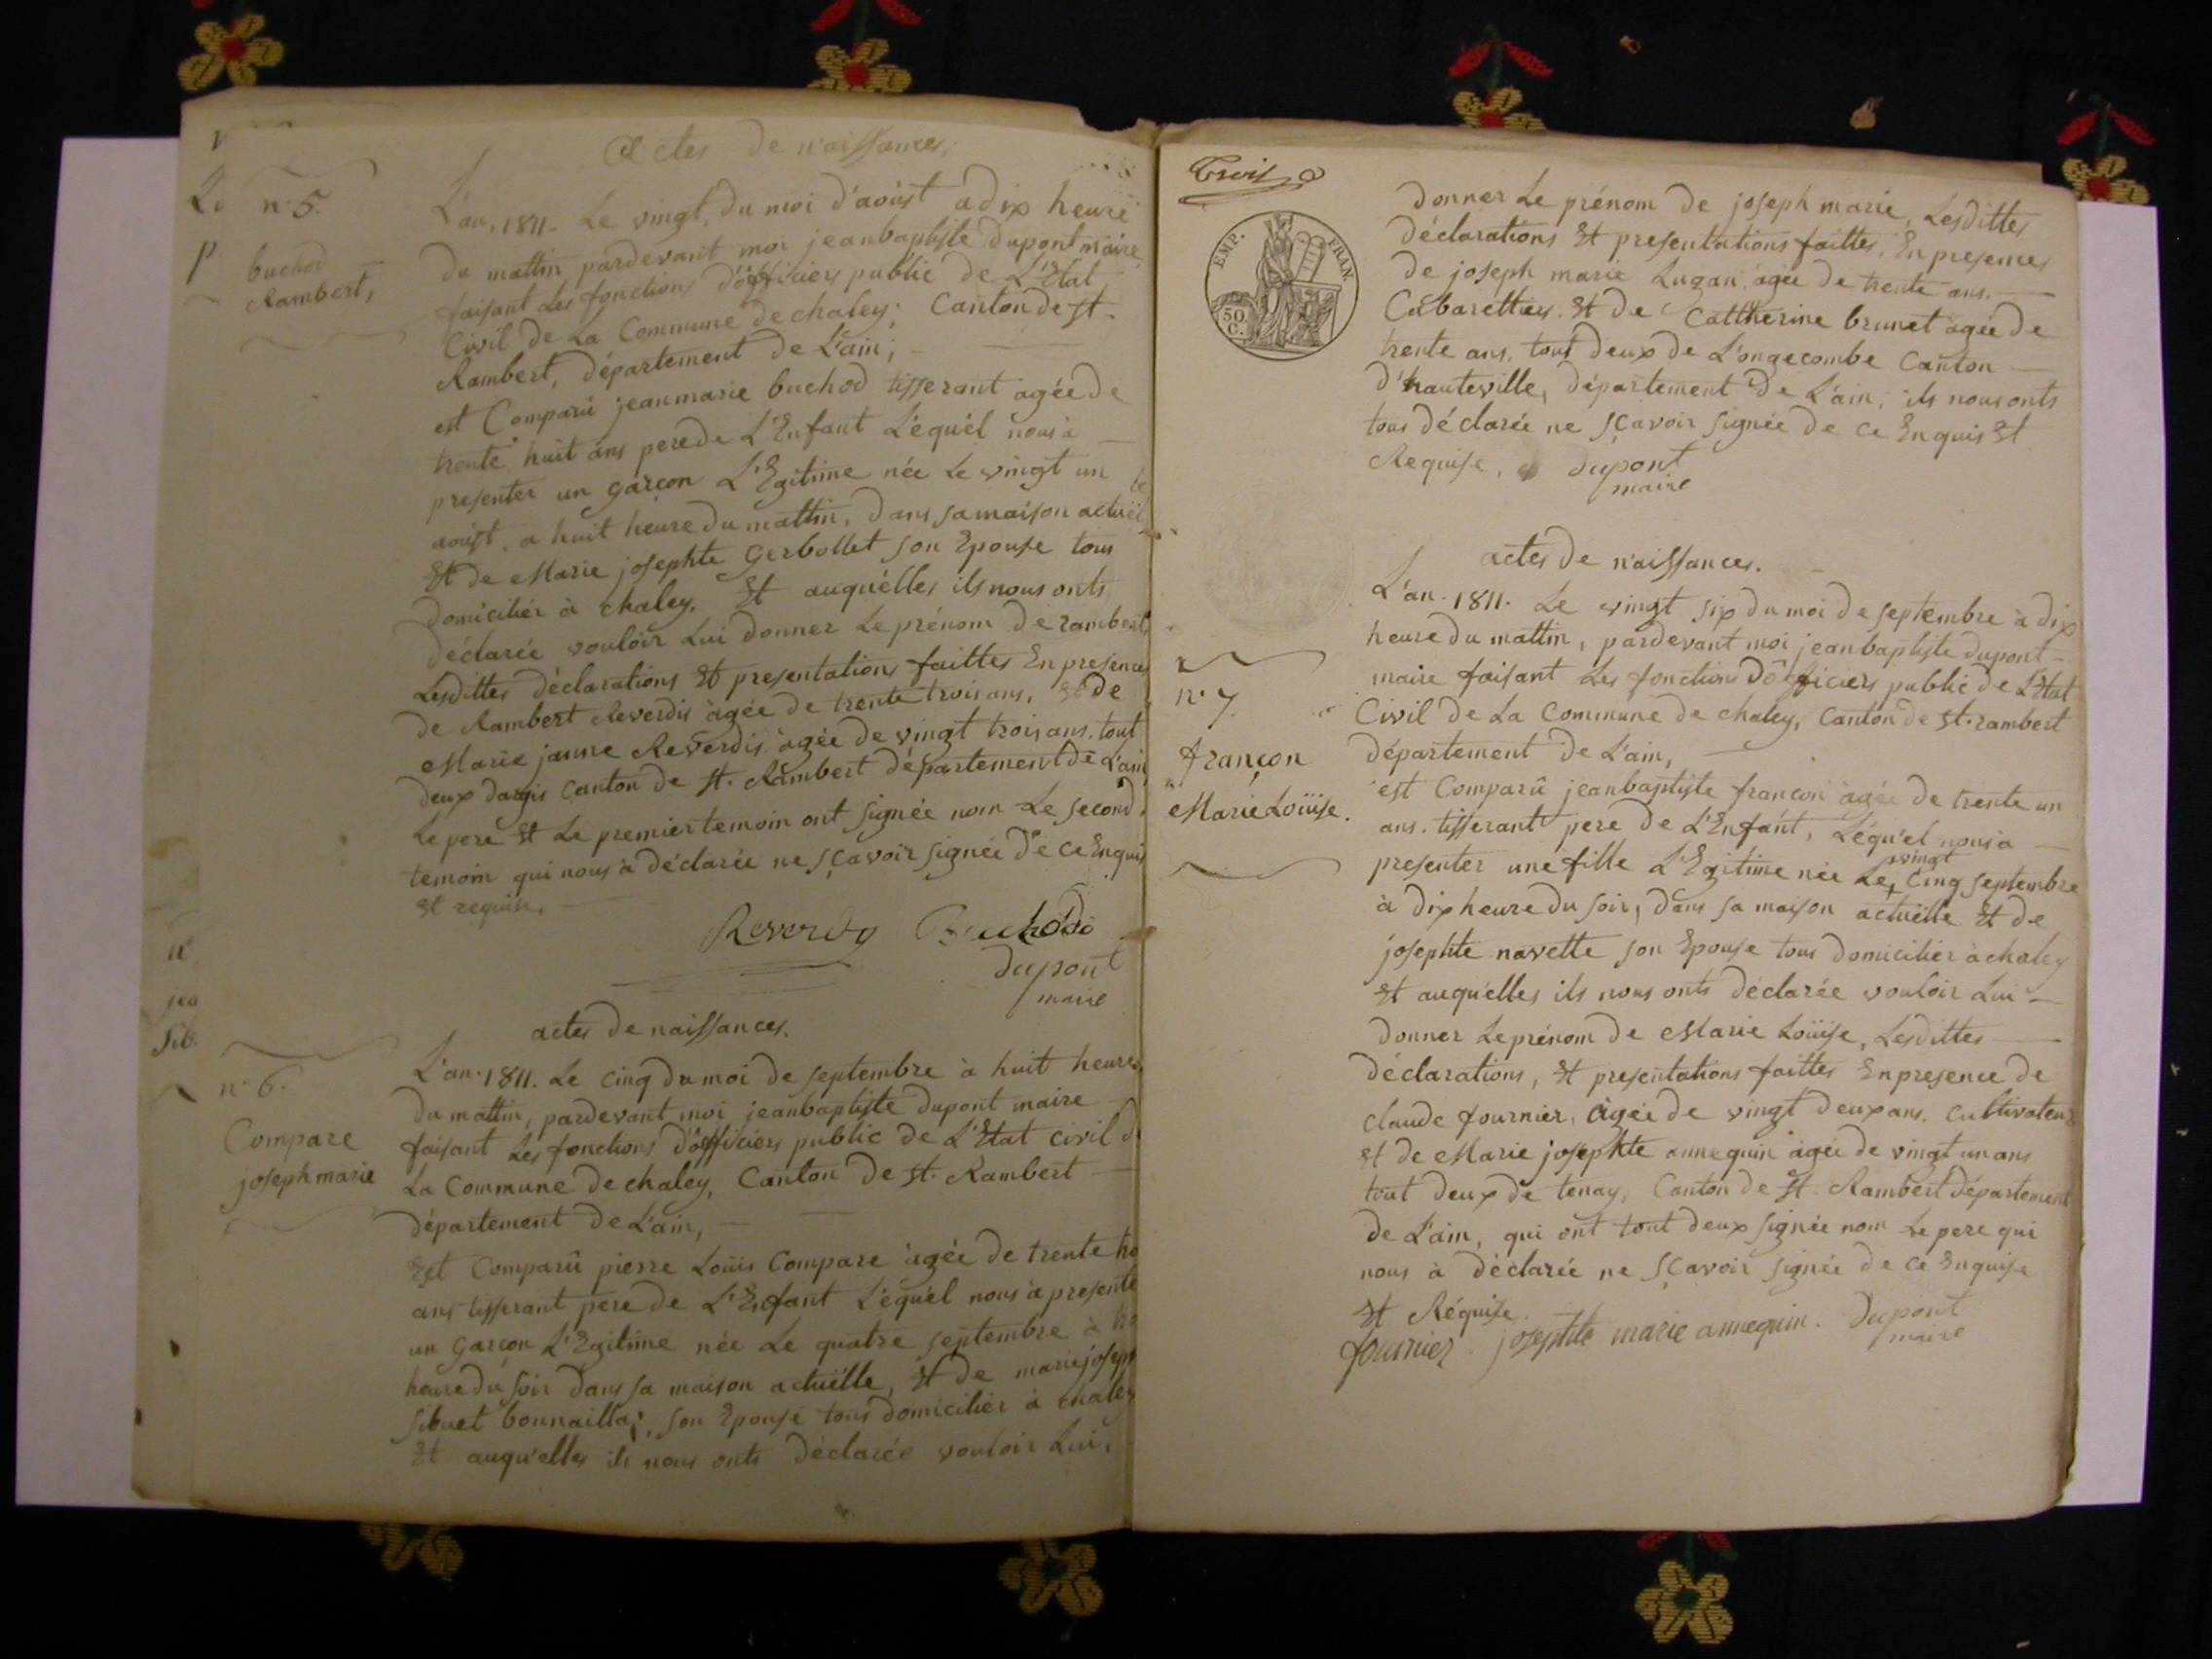 Actes de naissances,
n.° 5.
buchod
Rambert,
L'an, 1811. Le vingt, du moi d'aoust a dix heure
du mattin pardevant moi jeanbaptiste dupont maire
faisant Les fonctions d'officiers public de L'Etat
Civil de La Commune de chaley; Canton de st.
Rambert, département de L'ain;
est Comparû jeanmarie buchod tisserant agée de
trente huit ans pere de L'Enfant Léquél nous à
presenter un garçon L'Egitime née Le vingt un
aoust, a huit heure du mattin, dans sa maison actuël
Et de Marie josephte Gerbollet son Epouse tous
domicilier à chaley. Et auquélles ils nous onts
déclarée vouloir Lui donner Le prénom de rambert
Lesdittes déclarations Et presentations faittes En presences
de Rambert Reverdis àgée de trente trois ans, et de
Marie janne Reverdis àgée de vingt trois ans. tout
deux dargis Canton de st. Rambert département de L'ain
Le pere Et Le premier temoin ont signée nom Le second
temoin qui nous à déclarée ne sçavoir signée de ce Enquis
Et requise.
Reverdy Buchod
dupont
maire
actes de naissances.
n.° 6.
Compare
joseph marie
L'an. 1811. Le Cinq du moi de septembre à huit heures
du mattin, pardevant moi jeanbaptiste dupont maire
faisant Les fonctions d'officiers public de L'Etat Civil d
La Commune de chaley, Canton de st. Rambert
département de L'ain,
Est Comparû pierre Loüis Compare àgée de trente tro
ans tisserant pere de L'Enfant Léquél nous à presenté
un Garçon L'Egitime née Le quatre septembre à
heure du soir dans sa maison actuëlle, Et de marie joseph
sibuet bonnailla, son Epouse tous domicilier à chaley
Et auqu'elles ils nous onts déclarée vouloir Lui,
Trois
EMP. FRAN.
50
C.
donner Le prénom de joseph marie, Lesdittes
déclarations Et presentations faittes, En presences
de joseph marie Lugan àgée de trente ans.
Cabarettier. Et de Cattherine brunet àgée de
trente ans, tout deux de L'ongecombe Canton
d'hauteville, département de L'ain, ils nous onts
tous déclarée ne sçavoir signée de ce Enquis Et
Requise. dupont
maire
actes de naissances.
n.° 7.
françon
Marie Loüise.
L'an. 1811. Le vingt six du moi de septembre à dix
heure du mattin, pardevant moi jeanbaptiste dupont
maire faisant Les fonctions d'officiers public de L'Etat
Civil de La Commune de chaley, Canton de st. rambert
département de L'ain,
est Comparû jeanbaptiste francon àgée de trente un
ans. tisserant pere de L'Enfant, Léqu'el nous a
presenter une fille L'Egitime née Le vingt Cinq septembre
à dix heure du soir, dans sa maison actuëlle Et de
josephte navette son Epouse tous domicilier à chaley
Et auqu'elles ils nous onts déclarée vouloir Lui
donner Le prénom de Marie Loüise, Lesdittes
déclarations, Et presentations faittes En presence de
claude fournier, àgée de vingt deux ans. Cultivateur
Et de Marie josephte annequin àgée de vingt un ans
tout deux de tenay, Canton de St. Rambert département
de L'ain, qui ont tout deux signée nom Le pere qui
nous à déclarée ne sçavoir signée de ce Enquise
Et Réquise.
fournier. josephte marie annequin. dupont
maire